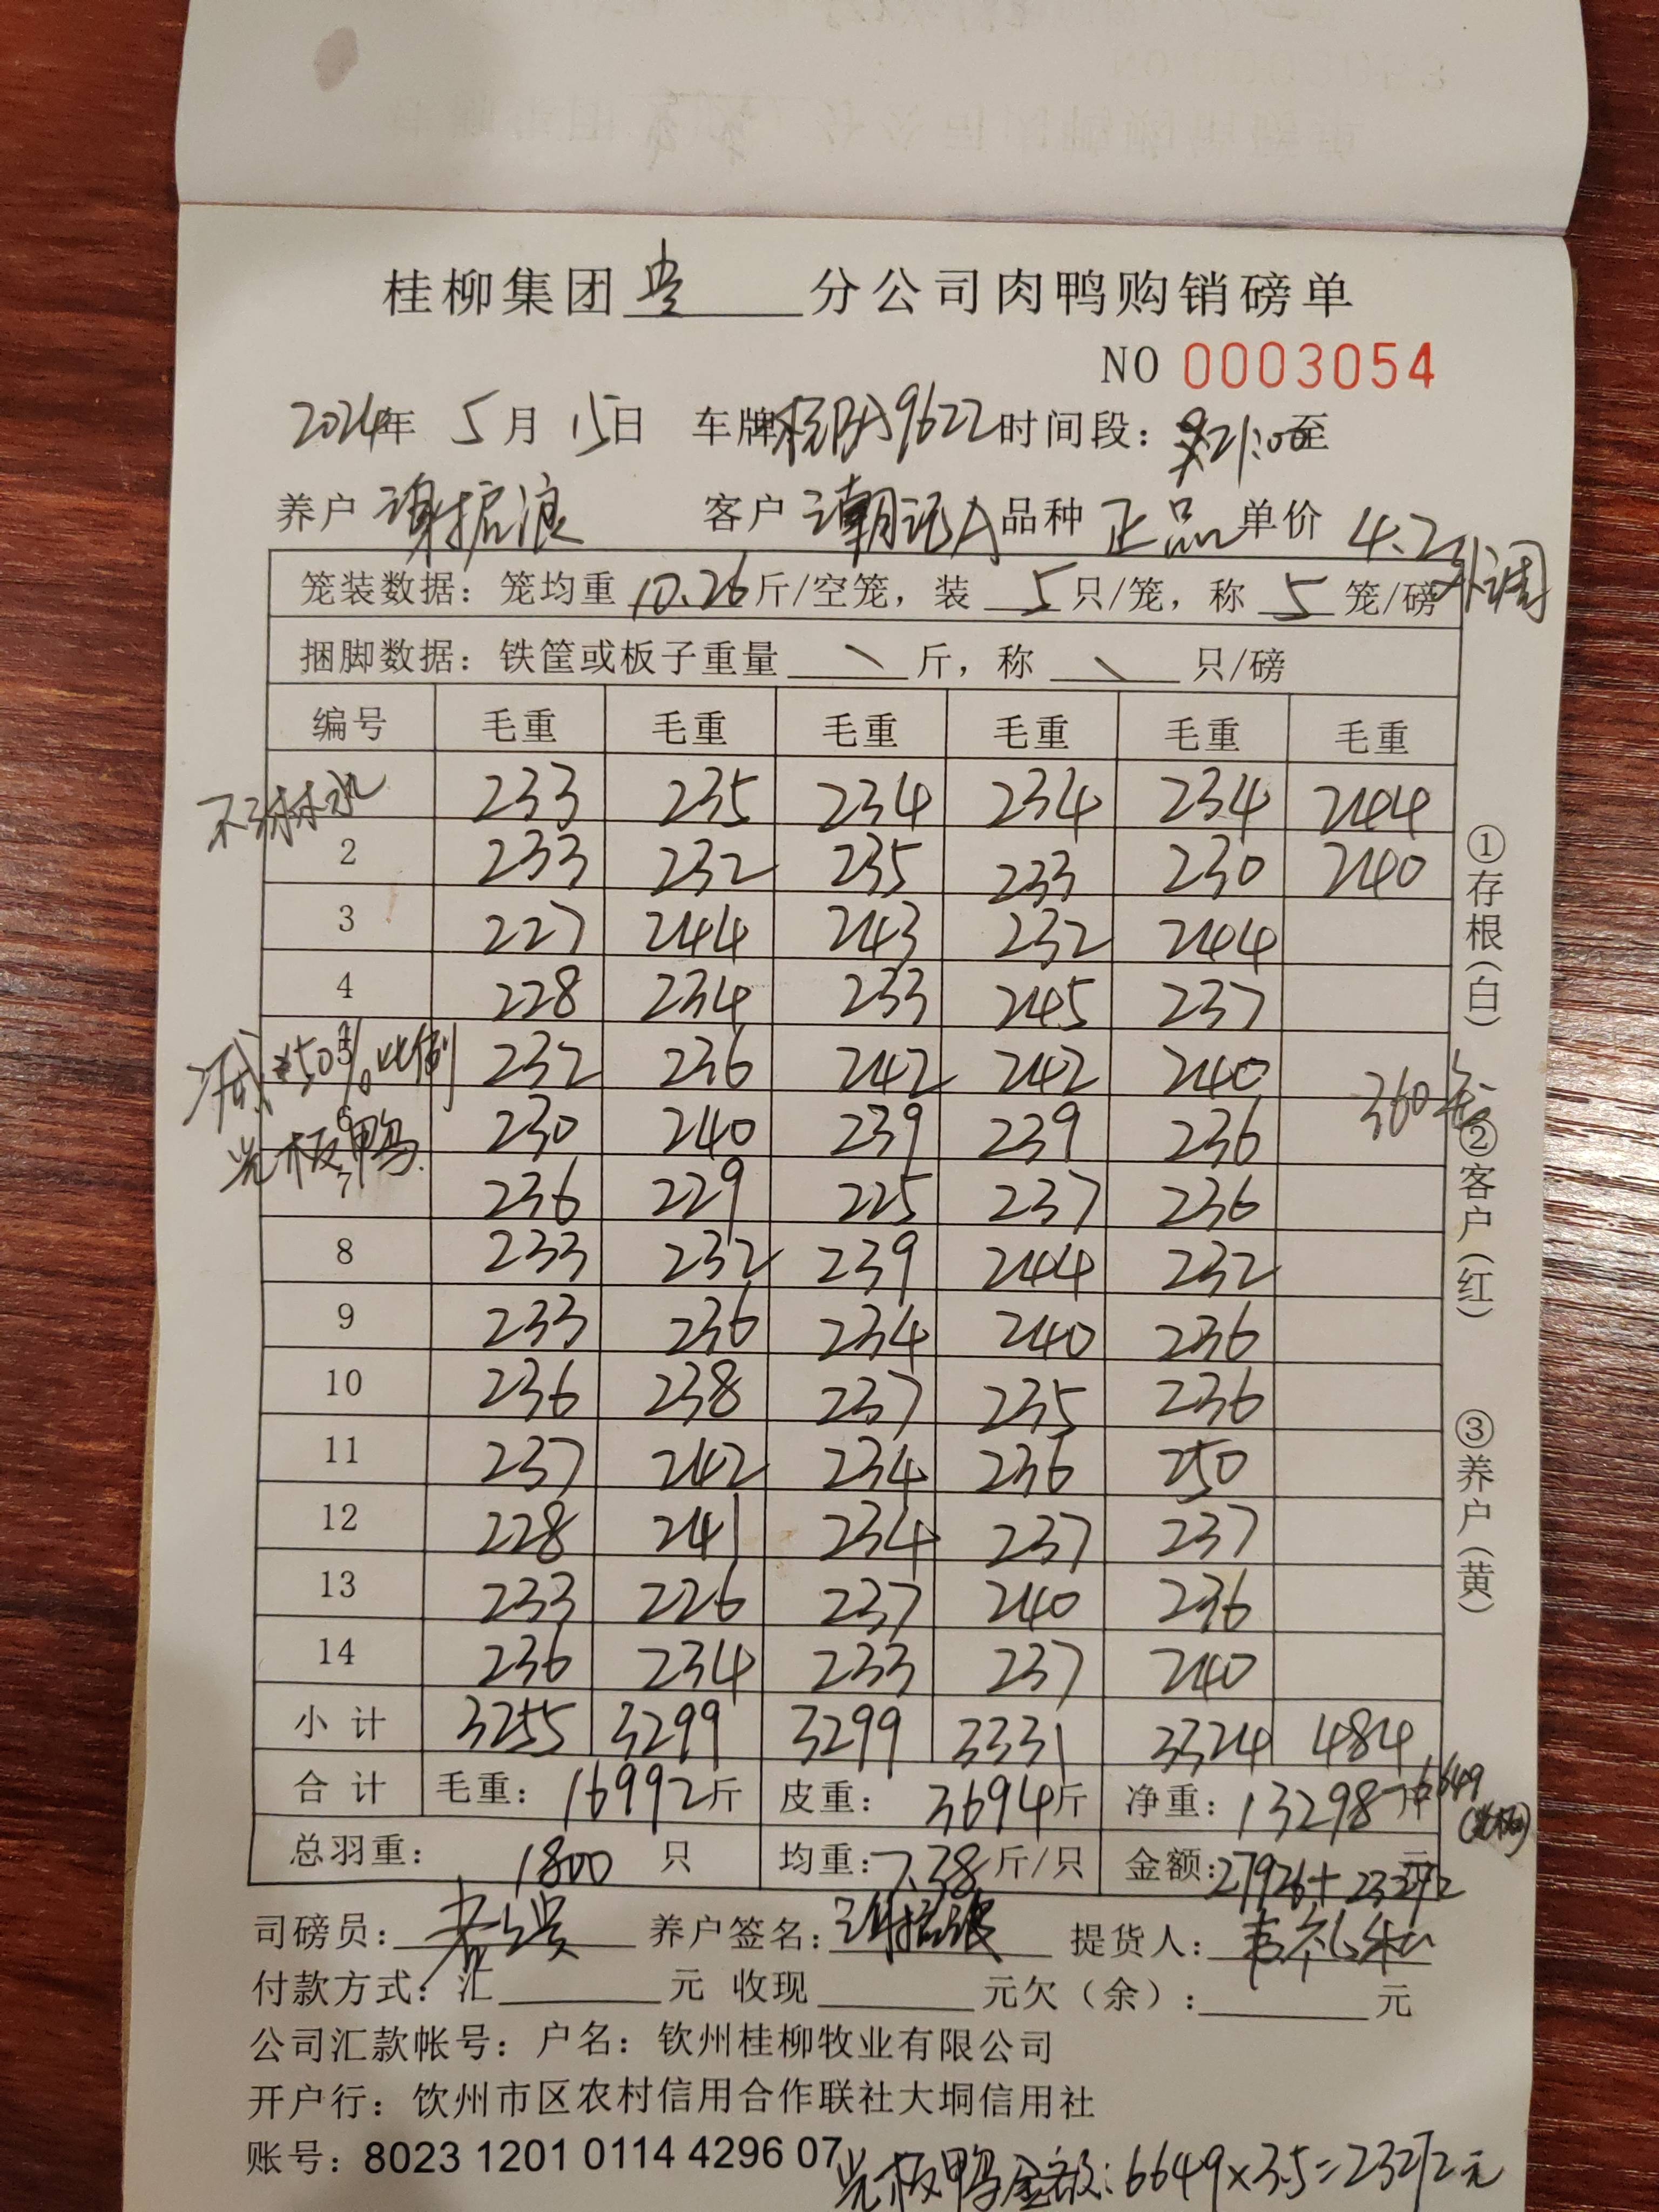 桂柳集团 贵 分公司肉鸭购销磅单
NO 0003054
2024年 5月 15日 车牌 9622 时间段: 21:00至
养户 谢振浪 客户 潮记A 品种 正品 单价 4.2外调
笼装数据: 笼均重 10.26 斤/空笼, 装 5 只/笼, 称 5 笼/磅
捆脚数据: 铁筐或板子重量 \ 斤, 称 \ 只/磅
编号 毛重 毛重 毛重 毛重 毛重 毛重
不淋水 233 235 234 234 234 244
2 233 232 235 233 230 240
3 227 244 243 232 244
4 228 234 233 245 237
5 232 236 242 242 240
50% 比例
360笼
6 230 240 239 239 236
光板鸭
7 236 229 225 237 236
8 233 232 239 244 232
9 233 236 234 240 236
10 236 238 237 235 236
11 237 242 234 236 250
12 228 241 234 237 237
13 233 226 237 240 236
14 236 234 233 237 240
小计 3255 3299 3299 3331 3324 484
合计 毛重: 16992斤 皮重: 3694斤 净重: 13298斤 6649
(光板)
总羽重: 1800 只 均重: 7.38 斤/只 金额: 27926+23272元
①存根(白) ②客户(红) ③养户(黄)
司磅员: 养户签名: 谢振浪 提货人:
付款方式: 汇 元 收现 元欠(余): 元
公司汇款帐号: 户名: 钦州桂柳牧业有限公司
开户行: 钦州市区农村信用合作联社大垌信用社
账号: 8023 1201 0114 4296 07
光板鸭金额: 6649×3.5=23272元